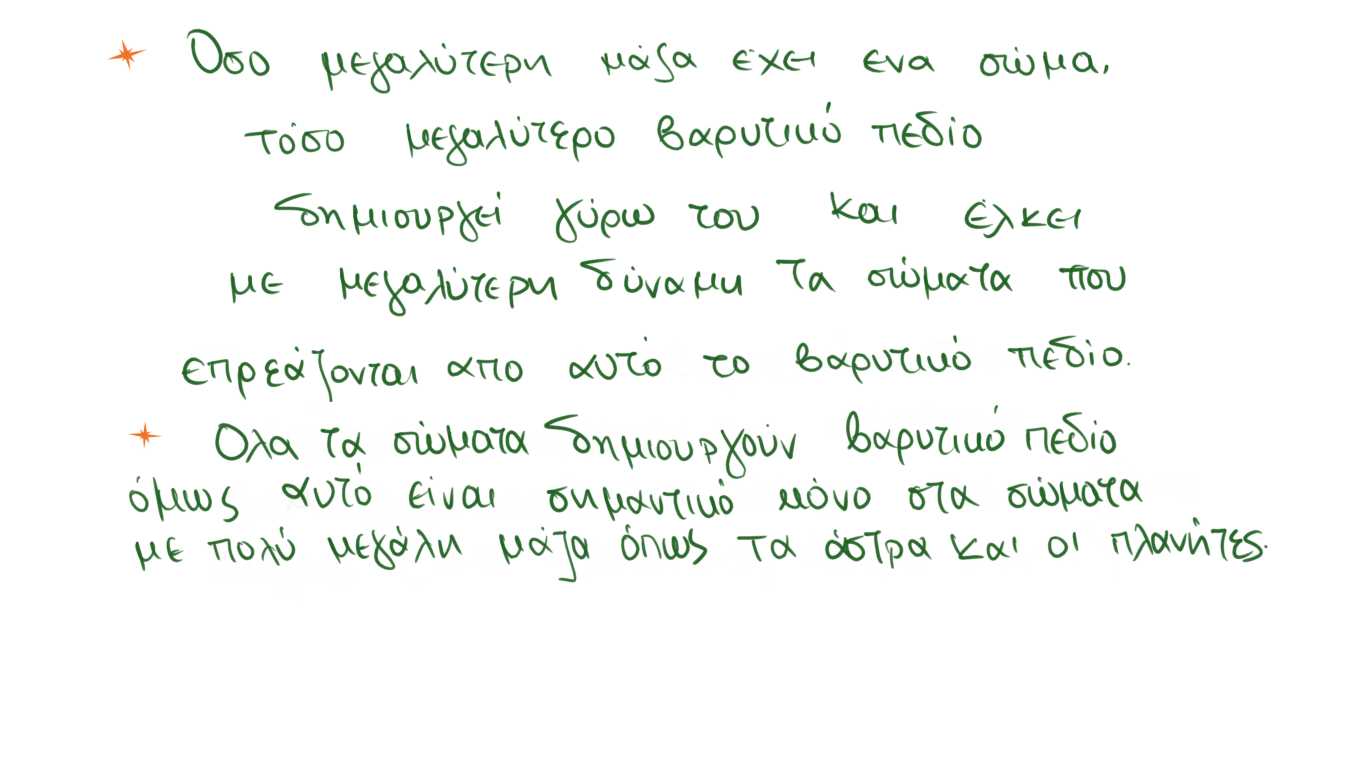 Όσο μεγαλύτερη μάζα έχει ενα σώμα,
τόσο μεγαλύτερο βαρυτικό πεδίο
δημιουργεί γύρω του και έλκει
με μεγαλύτερη δύναμη τα σώματα που
επρεάζονται απο αυτό το βαρυτικό πεδίο.
Ολα τα σώματα δημιουργούν βαρυτικό πεδίο
όμως αυτό είναι σημαντικό μόνο στα σώματα
με πολύ μεγάλη μάζα όπως τα άστρα και οι πλανήτες.